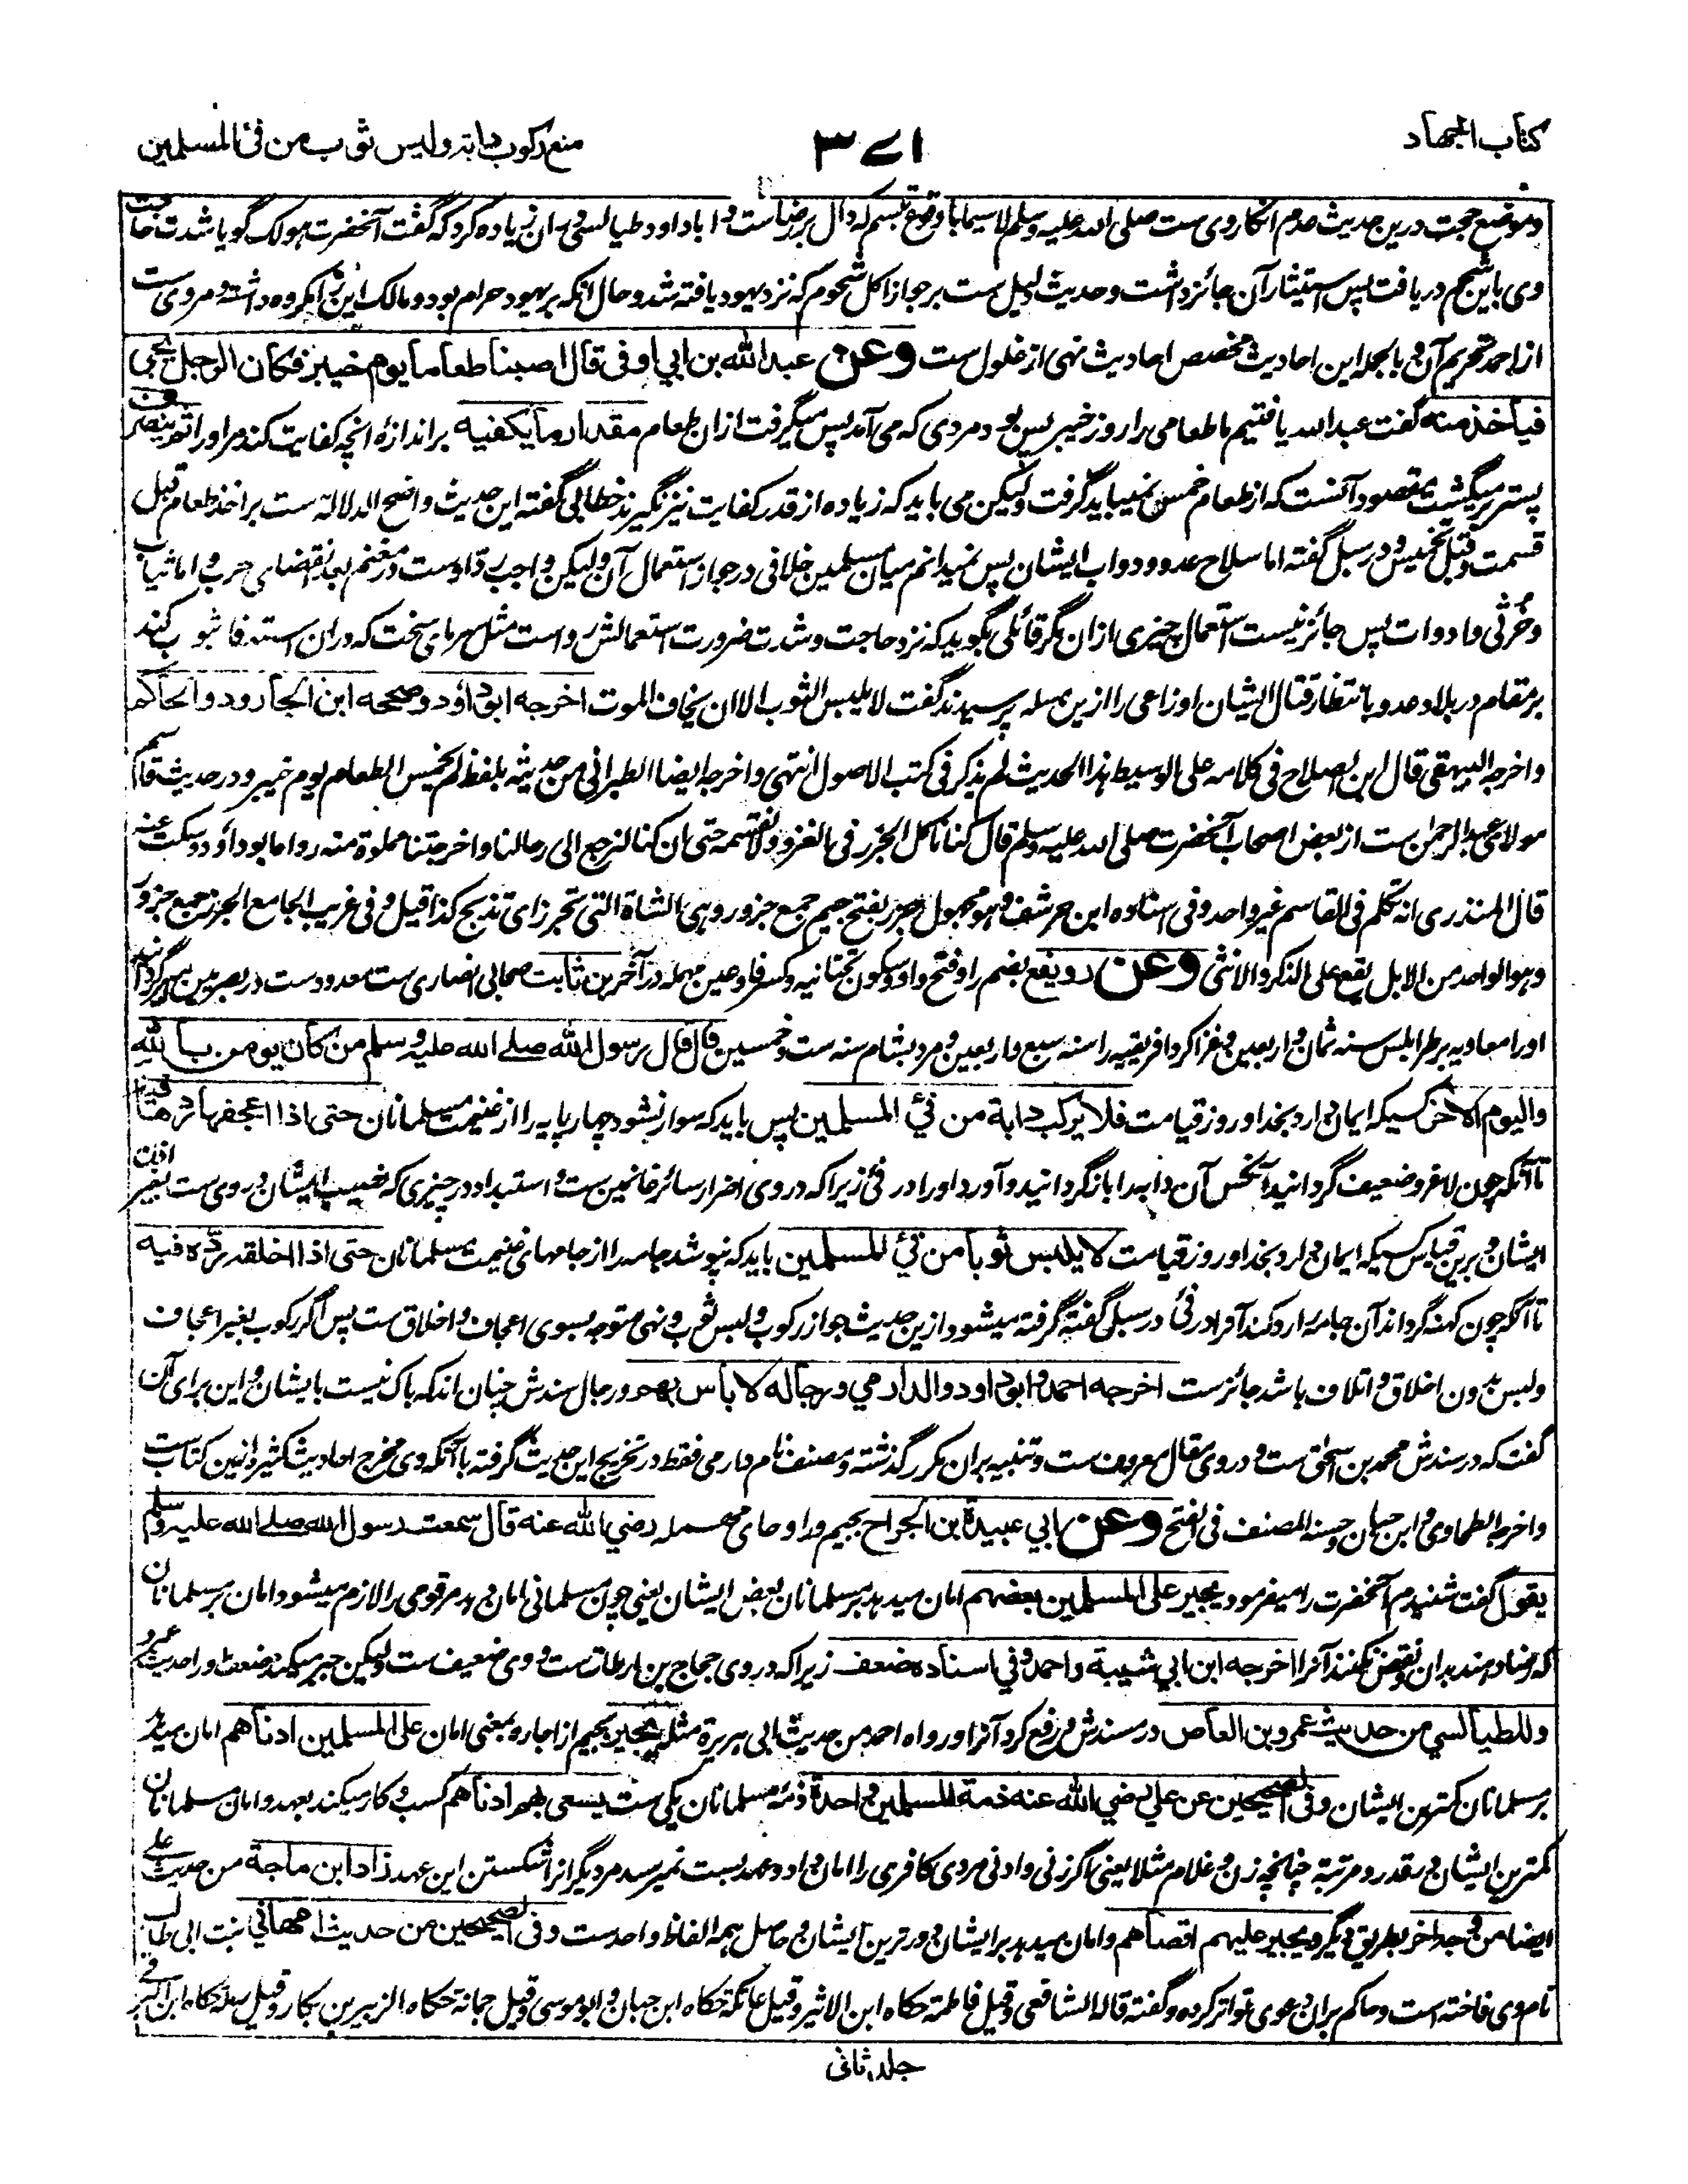 کتاب الجهاد
۳۷۱
منع رکوب دابة ولبس ثوب من فئ المسلمین
وموضع حجت درین حدیث عدم انکار وی ست صلی الله علیه وسلم لا سیما با وقوع تبسم که دال بر رضاست و ابا داود طیالسی در ان زیاده کرد که گفت آنحضرت هو لک گویا شدت حاجت
وی باین شحم دریافت پس استیثار آن جائز داشت و حدیث دلیل ست بر جواز اکل شحوم که نزد یهود یافته شد و حال آنکه بر یهود حرام بود و مالک این را مکروه داشته و مروی ست
از احمد تحریم آن و بالجمله این احادیث مخصص احادیث نهی از غلول ست وعن عبد الله بن ابي اوفی قال اصبنا طعاما يوم خيبر فكان الرجل يجي
فيأخذ منه گفت عبد الله یافتیم ما طعامی را روز خیبر پس بود مردی که می آمد پس میگرفت ازان طعام مقدار ما يكفيه بر اندازهٔ آنچه کفایت کند مر او را ثم ينصرف
پستر برمیگشت مقصود آنست که از طعام خمس نمیباید گرفت ولیکن می باید که زیاده از قدر کفایت نیز نگیرند خطابی گفته این حدیث واضح الدلاله ست بر اخذ طعام قبل
قسمت و قبل تخمیس و در سبل گفته اما سلاح عدو و دواب ایشان پس نمیدانم میان مسلمین خلافی در جواز استعمال آن ولیکن واجب رد اوست در مغنم بعد انقضای حرب و اما ثیاب
و خرثی و ادوات پس جائز نیست استعمال چیزی ازان مگر قائلی بگوید که نزد حاجت و شدت ضرورت استعمالش رواست مثل سرمای سخت که دران استدفا بثوب کند
بر مقام در بلاد عدو بانتظار قتال ایشان اوزاعی را ازین مسله پرسیدند گفت لا یلبس الثوب الا ان یخاف الموت اخرجه ابو داؤد وصححه ابن الجارود والحاكم
واخرجه البیهقی قال ابن الصلاح فی کلامه علی الوسیط هذا الحدیث لم یذکر فی کتب الاصول انتهی واخرجه ایضا الطبرانی من حدیثه بلفظ لم یخمس الطعام یوم خیبر و در حدیث قاسم
مولای عبد الرحمن ست از بعض اصحاب آنحضرت صلی الله علیه وسلم قال کنا ناکل الجزر فی الغزو ولا نقسمه حتی ان کنا لنرجع الی رحالنا واخرجتنا مملوة منه رواه ابو داؤد وسکت عنه
قال المنذری انه تکلم فی القاسم غیر واحد وفی اسناده ابن حرشف وهو مجهول جزر بفتح جیم جمع جزور وهی الشاة التی تجزر ای تذبح کذا قیل وفی غریب الجامع الجزر جمع جزور
وهو الواحد من الابل یقع علی الذکر والانثی وعن رویفع بضم را وفتح واو وسکون تحتانیه وکسر فا وعین مهمله در آخر بن ثابت صحابی انصاری ست معدود ست در بصریین امیر گردانید
اورا معاویه بر طرابلس سنه ثمان و اربعین و غزا کرد افریقیه را سنه سبع و اربعین و مرد بشام سنه ست و خمسین قال قال رسول الله صلی الله علیه وسلم من كان يومن بالله
واليوم الآخر کسیکه ایمان دارد بخدا و روز قیامت فلا يركب دابة من فئ المسلمين پس باید که سوار نشود چارپایه را از غنیمت مسلمانان حتى اذا اعجفها ردها فيه
تا آنکه چون لاغر و ضعیف گردانید آنکس آن دابه را بازگردانید و آورد اورا در فئ زیرا که در وی اضرار سائر غانمین ست و استبداد در چیزی که نصیب ایشان در وی ست بغیر اذن
ایشان و برین قیاس کسیکه ایمان دارد بخدا و روز قیامت لا يلبس ثوبا من فئ المسلمين باید که نپوشد جامه را از جامهای غنیمت مسلمانان حتى اذا اخلقه رده فيه
تا آنکه چون کهنه گرداند آن جامه را رد کند آنرا در فئ در سبل گفته گرفته میشود ازین حدیث جواز رکوب و لبس ثوب و نهی متوجه بسوی اعجاف و اخلاق ست پس اگر رکوب بغیر اعجاف
و لبس بدون اخلاق و اتلاف باشد جائز ست اخرجه احمد وابو داود والدارمي ورجاله لا بأس بهم ورجال سندش چنان اند که باک نیست بایشان و این برای آن
گفت که در سندش محمد بن اسحق ست و در وی مقال معروف ست و تنبیه بران مکرر گذشته و مصنف نام دارمی فقط در تخریج این حدیث گرفته با آنکه وی مخرج احادیث کثیره ازین کتاب ست
واخرجه الطحاوی وابن حبان وحسنه المصنف فی الفتح وعن ابي عبيدة بن الجراح بجیم ورا وحای مهمله رضي الله عنه قال سمعت رسول الله صلی الله علیه وسلم
يقول گفت شنیدم آنحضرت را میفرمود يجير على المسلمين بعضهم امان میدهد بر مسلمانان بعض ایشان یعنی چون مسلمانی امان دهد مر قومی را لازم میشود امان بر مسلمانان
که رضا دهند بدان و نقض نکنند آنرا اخرجه ابن ابي شيبة واحمد وفي اسناده ضعف زیرا که در وی حجاج بن ارطاة ست و وی ضعیف ست ولیکن جبر میکند ضعف او را حدیث عمرو
وللطيالسي من حديث عمرو بن العاص در مسندش و رفع کرد آنرا و رواه احمد من حدیث ابی هریرة مثله يجير بجیم از اجاره بمعنی امان على المسلمين ادناهم امان میدهد
بر مسلمانان کمترین ایشان وفي الصحيحين عن علي رضي الله عنه ذمة المسلمين واحدة ذمهٔ مسلمانان یکی ست يسعى بها ادناهم کسب و کار میکند بعهد و امان مسلمانان
کمترین ایشان در قدر و مرتبة چنانچه زن و غلام مثلا یعنی اگر زنی و ادنی مردی کافری را امان داد و عهد بست نمیرسد مر دیگر انرا شکستن این عهد زاد ابن ماجة من حديث علی
ایضا من وجه آخر بطریق دیگر ويجير عليهم اقصاهم و امان میدهد بر ایشان دورترین ایشان و حاصل همه الفاظ واحد ست وفي الصحيحين من حديث ام هاني بنت ابی طالب
نام وی فاخته است و حاکم بران دعوی تواتر کرده و گفته قاله الشافعی وقیل فاطمة حکاه ابن الاثیر وقیل عاتکة حکاه ابن حبان وابو موسی وقیل جمانة حکاه الزبیر بن بکار وقیل رملة حکاه ابن البرقی
جلد ثانی